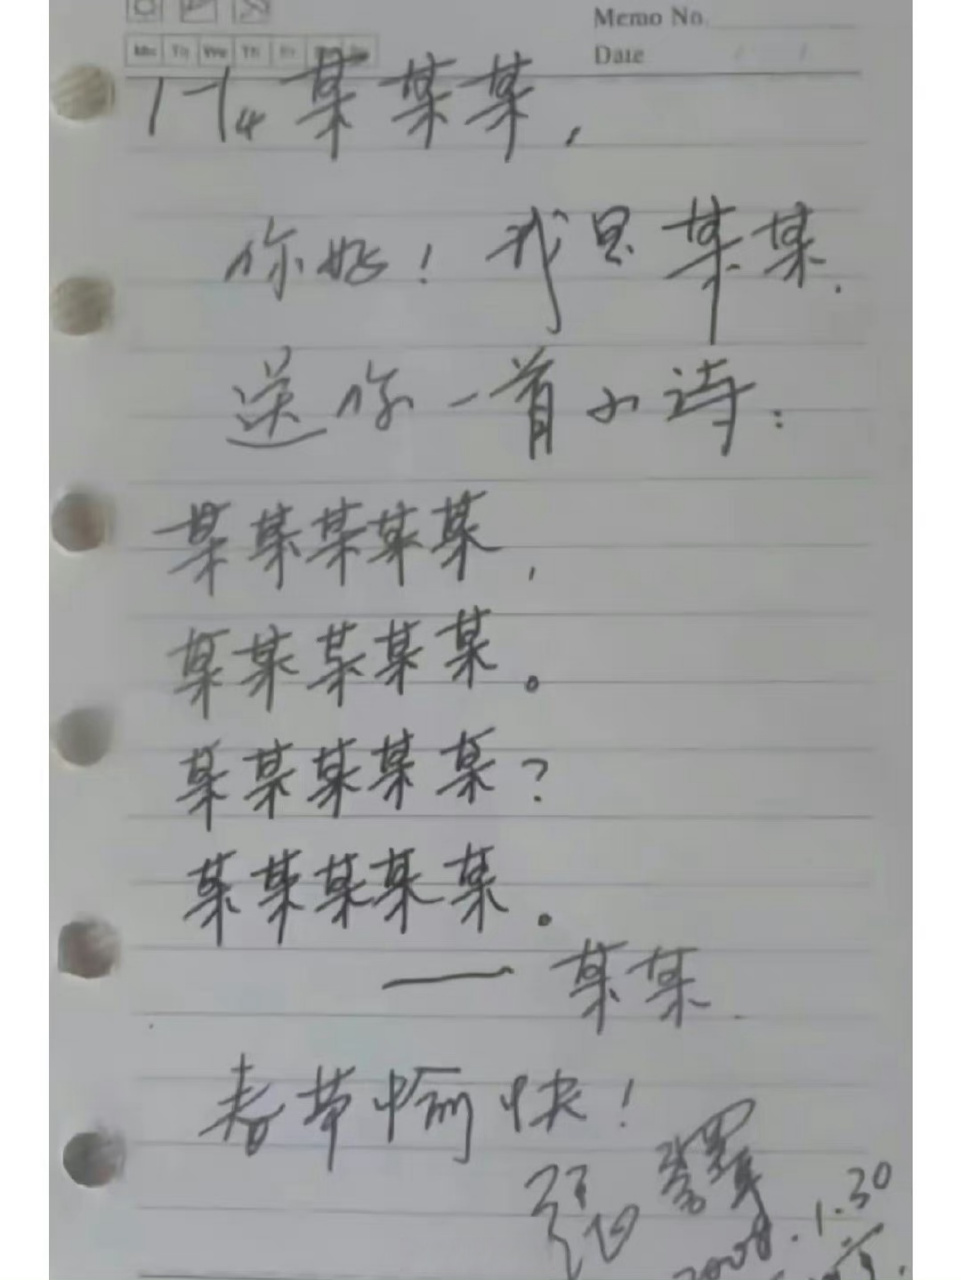 Memo No.
Date / /
Mo Tu We Th Fr
174 某某某,
你好！我是某某.
送你一首小诗:
某某某某某,
某某某某某。
某某某某某?
某某某某某。
——某某.
春节愉快！
2008.1.30